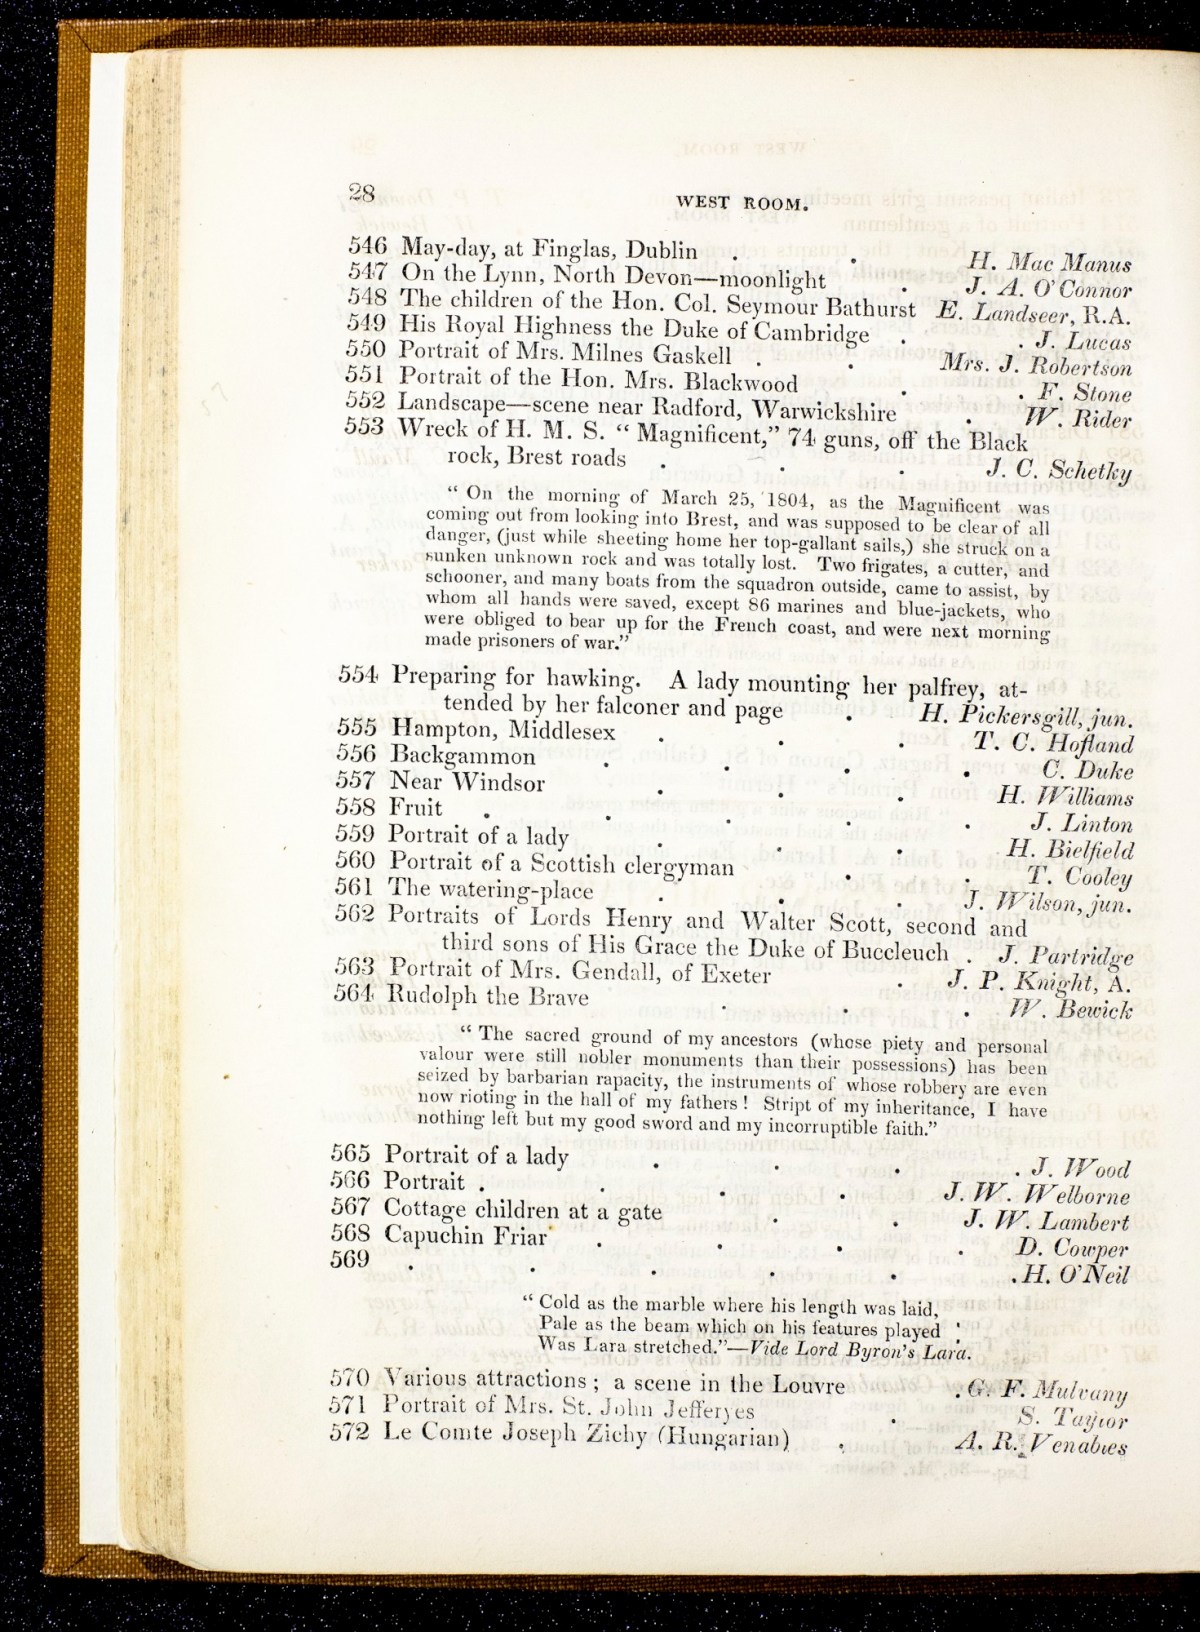 28
WEST ROOM.
546 May-day, at Finglas, Dublin . . H. Mac Manus
547 On the Lynn, North Devon—moonlight . J. A. O'Connor
548 The children of the Hon. Col. Seymour Bathurst E. Landseer, R.A.
549 His Royal Highness the Duke of Cambridge . . J. Lucas
550 Portrait of Mrs. Milnes Gaskell . . Mrs. J. Robertson
551 Portrait of the Hon. Mrs. Blackwood . . F. Stone
552 Landscape—scene near Radford, Warwickshire . W. Rider
553 Wreck of H. M. S. “ Magnificent,” 74 guns, off the Black
rock, Brest roads . . . J. C. Schetky
“ On the morning of March 25, 1804, as the Magnificent was
coming out from looking into Brest, and was supposed to be clear of all
danger, (just while sheeting home her top-gallant sails,) she struck on a
sunken unknown rock and was totally lost. Two frigates, a cutter, and
schooner, and many boats from the squadron outside, came to assist, by
whom all hands were saved, except 86 marines and blue-jackets, who
were obliged to bear up for the French coast, and were next morning
made prisoners of war.”
554 Preparing for hawking. A lady mounting her palfrey, at-
tended by her falconer and page . H. Pickersgill, jun.
555 Hampton, Middlesex . . . T. C. Hofland
556 Backgammon . . . . C. Duke
557 Near Windsor . . . H. Williams
558 Fruit . . . . . J. Linton
559 Portrait of a lady . . . H. Bielfield
560 Portrait of a Scottish clergyman . . T. Cooley
561 The watering-place . . . J. Wilson, jun.
562 Portraits of Lords Henry and Walter Scott, second and
third sons of His Grace the Duke of Buccleuch . J. Partridge
563 Portrait of Mrs. Gendall, of Exeter . J. P. Knight, A.
564 Rudolph the Brave . . . W. Bewick
“ The sacred ground of my ancestors (whose piety and personal
valour were still nobler monuments than their possessions) has been
seized by barbarian rapacity, the instruments of whose robbery are even
now rioting in the hall of my fathers ! Stript of my inheritance, I have
nothing left but my good sword and my incorruptible faith.”
565 Portrait of a lady . . . . J. Wood
566 Portrait . . . . J. W. Welborne
567 Cottage children at a gate . . J. W. Lambert
568 Capuchin Friar . . . . D. Cowper
569 . . . . . . H. O'Neil
“ Cold as the marble where his length was laid,
Pale as the beam which on his features played
Was Lara stretched.”—Vide Lord Byron's Lara.
570 Various attractions ; a scene in the Louvre . G. F. Mulvany
571 Portrait of Mrs. St. John Jefferyes . S. Taylor
572 Le Comte Joseph Zichy (Hungarian) . A. R. Venables